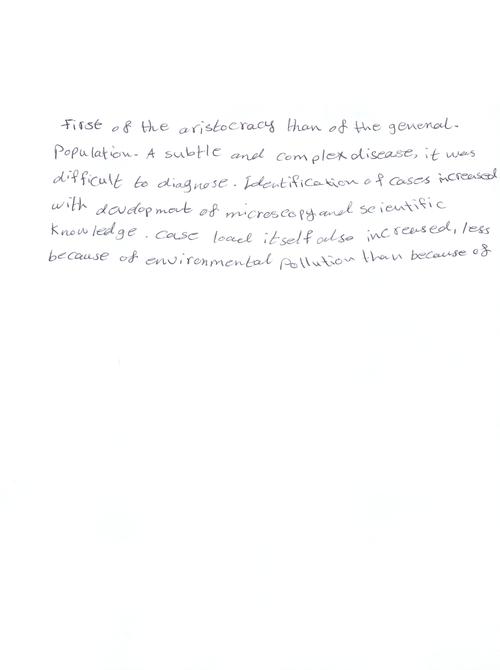 First of the aristocracy than of the general.
Population. A subtle and complex disease, it was
difficult to diagnose. Identification of cases increased
with devdopment of microscopy and scientific
Knowledge. case load itself also increased, less
because of environmental pollution than because of